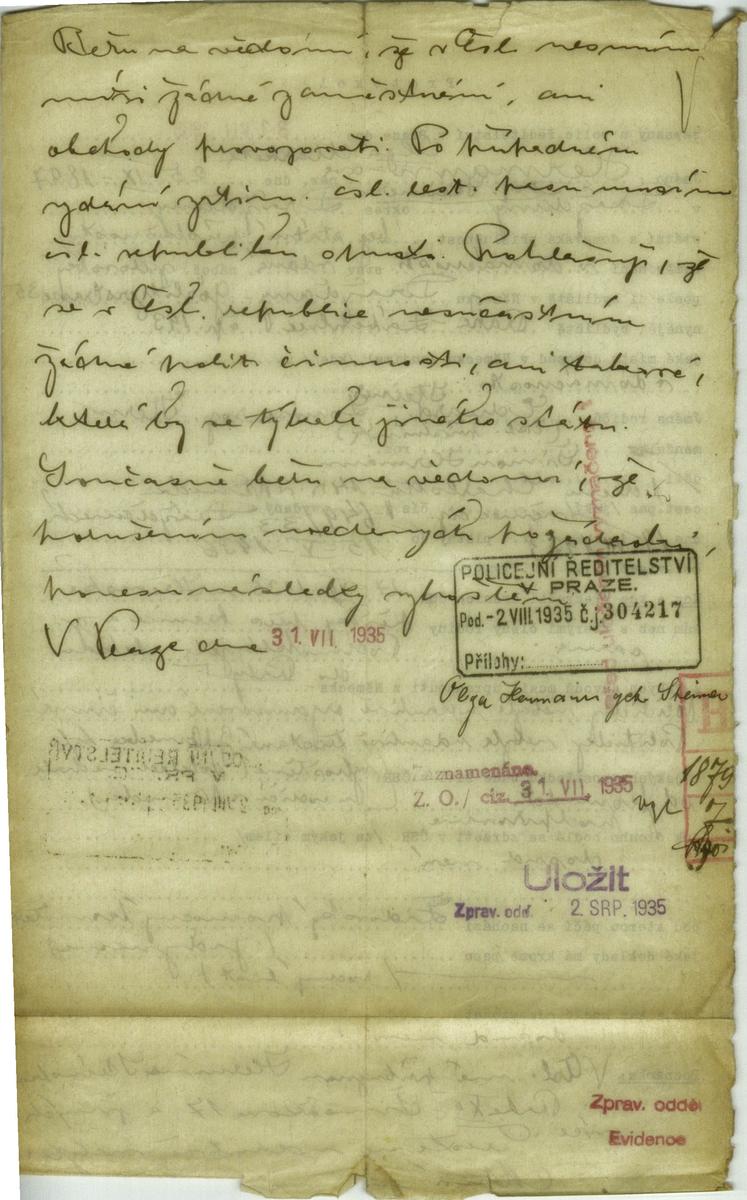 Béřu na vědomí, že v Čsl. nesmím
míti žádné zaměstnání, ani
obchody provozovati. Po případném
vydání zatím. čsl. cest. pasu musím
čsl. republiku opustit. Prohlašuji, že
se v Čsl. republice nesúčastním
žádné polit. činnosti, ani takové,
která by se týkala jiného státu.
Současně béřu na vědomí, že
porušením uvedených požadavků,
ponesu následky vyhoštění.
V Praze dne 31 VII. 1935
POLICEJNÍ ŘEDITELSTVÍ
V PRAZE.
Pod. -2.VIII.1935 č.j. 304217
Přílohy:
Olga Hermann geb. Steiner
Zaznamenáno
Z. O./ciz. 31. VII. 1935
1879
Uložit
Zprav. odd. 2. SRP. 1935
Zprav. odděl
Evidence